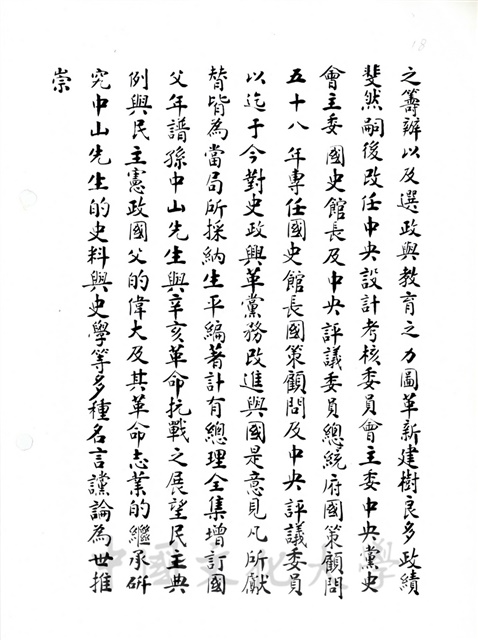 18
之籌辦以及選政與教育之力圖革新建樹良多政績
斐然嗣後改任中央設計考核委員會主委中央黨史
會主委國史館長及中央評議委員總統府國策顧問
五十八年專任國史館長國策顧問及中央評議委員
以迄于今對史政興革黨務改進與國是意見凡所獻
替皆為當局所採納生平編著計有總理全集增訂國
父年譜孫中山先生與辛亥革命抗戰之展望民主典
例與民主憲政國父的偉大及其革命志業的繼承研
究中山先生的史料與史學等多種名言讜論為世推
崇
中國文化大學